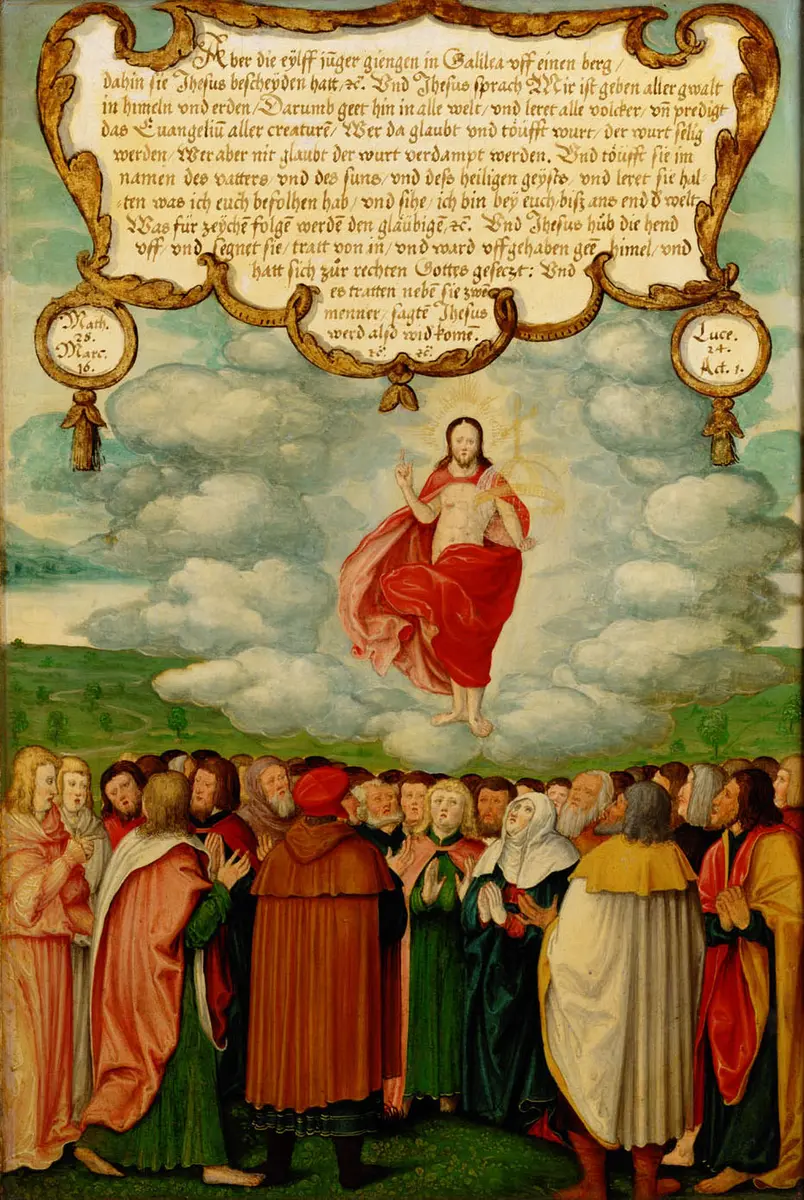 Aber die eylff junger giengen in Galilea uff einen berg/
dahin sie Jhesus bescheyden hatt/ ꝛc̃. Und Jhesus sprach Mir ist geben aller gwalt
in himeln und erden/ Darumb geet hin in alle welt/ und leret alle volcker/ uñ predigt
das Euangeliũ aller creaturẽ/ Wer da glaubt und töufft wurt/ der wurt selig
werden/ Wer aber nit glaubt der wurt verdampt werden. Und töufft sie im
namen des vatters/ und des suns/ und deß heiligen geysts/ und leret sie hal-
-ten was ich euch befolhen hab/ und sihe/ ich bin bey euch/ biß ans end d welt
Was für zeychẽ folgẽ werdẽ den gläubigẽ/ ꝛc̃. Und Jhesus hůb die hend
uff/ und segnet sie/ tratt von in/ und ward uffgehaben geẽ himel/ und
hatt sich zůr rechten Gottes geseczt: Und
es tratten nebẽ sie zwẽ
menner/ sagtẽ Jhesus
werd also widkomẽ.
ꝛc̃. ꝛc̃.
Math.
28.
Marc.
16.
Luce.
24.
Act. 1.